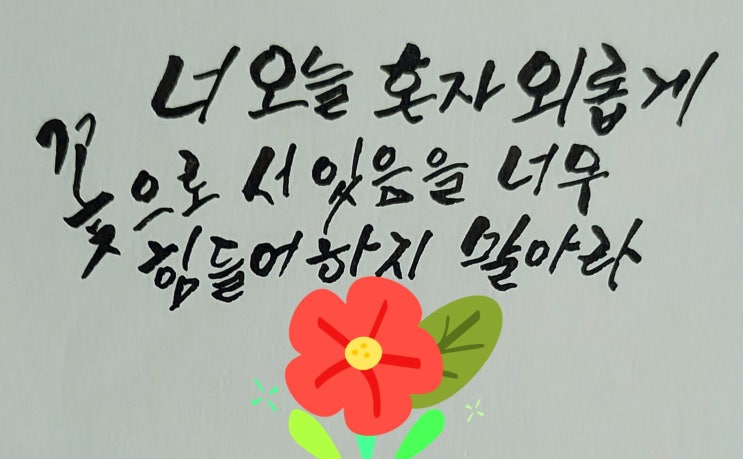 너 오늘 혼자 외롭게
꽃으로 서 있음을 너무
힘들어하지 말아라